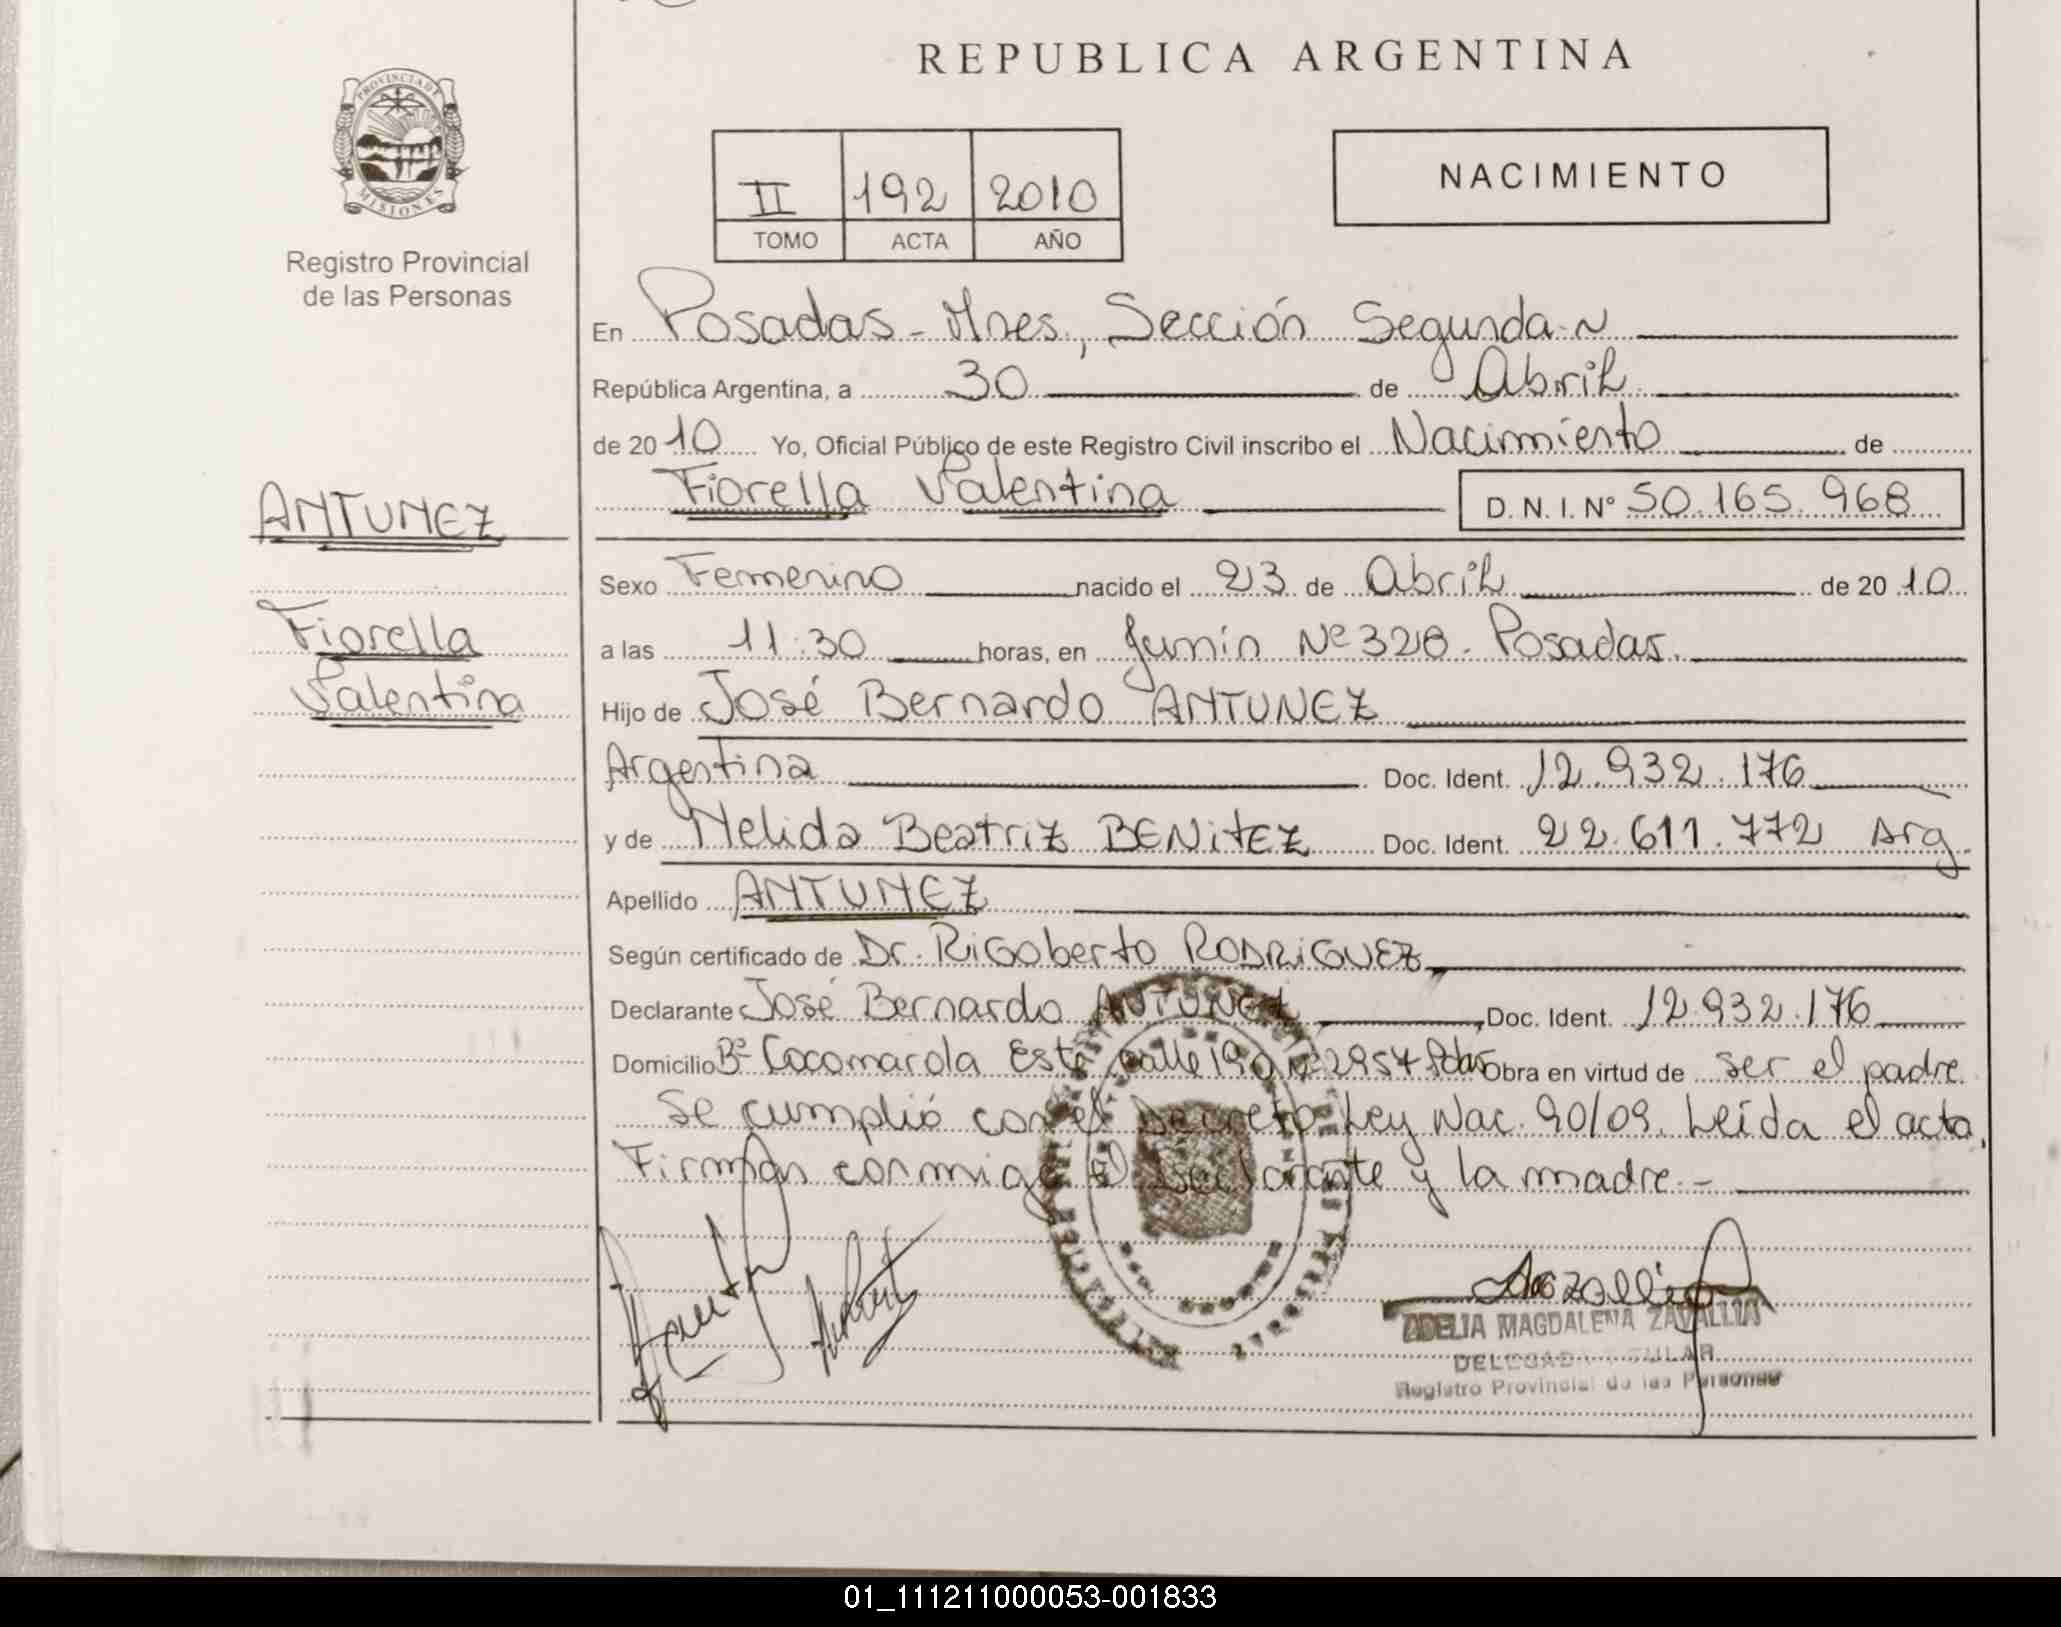 REPUBLICA ARGENTINA
PROVINCIA DE
MISIONES
Registro Provincial
de las Personas
II 192 2010
TOMO ACTA AÑO
NACIMIENTO
En Posadas - Mnes, Sección Segunda
República Argentina, a 30 de Abril
de 2010 Yo, Oficial Público de este Registro Civil inscribo el Nacimiento de
Fiorella Valentina D. N. I. Nº 50.165.968
ANTUNEZ
Fiorella
Valentina
Sexo Femenino nacido el 23 de Abril de 2010
a las 11:30 horas, en Junín Nº 328. Posadas.
Hijo de José Bernardo ANTUNEZ
Argentina Doc. Ident. 12.932.176
y de Nelida Beatriz BENITEZ Doc. Ident. 22.611.772 Arg
Apellido ANTUNEZ
Según certificado de Dr. Rigoberto RODRIGUEZ
Declarante José Bernardo ANTUNEZ Doc. Ident. 12.932.176
Domicilio Bº Cocomarola Este calle 190 Nº 2957 Pdas Obra en virtud de ser el padre
Se cumplió con el Decreto Ley Nac. 90/09. Leída el acta,
Firman conmigo el Declarante y la madre.-
ADELIA MAGDALENA ZAVALLIA
DELEGADA TITULAR
Registro Provincial de las Personas
01_111211000053-001833